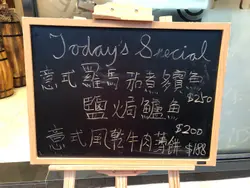 Today's Special
意式羅馬茄煮多寶魚
$250
鹽焗鱸魚
$200
意式風乾牛肉薄餅 $188